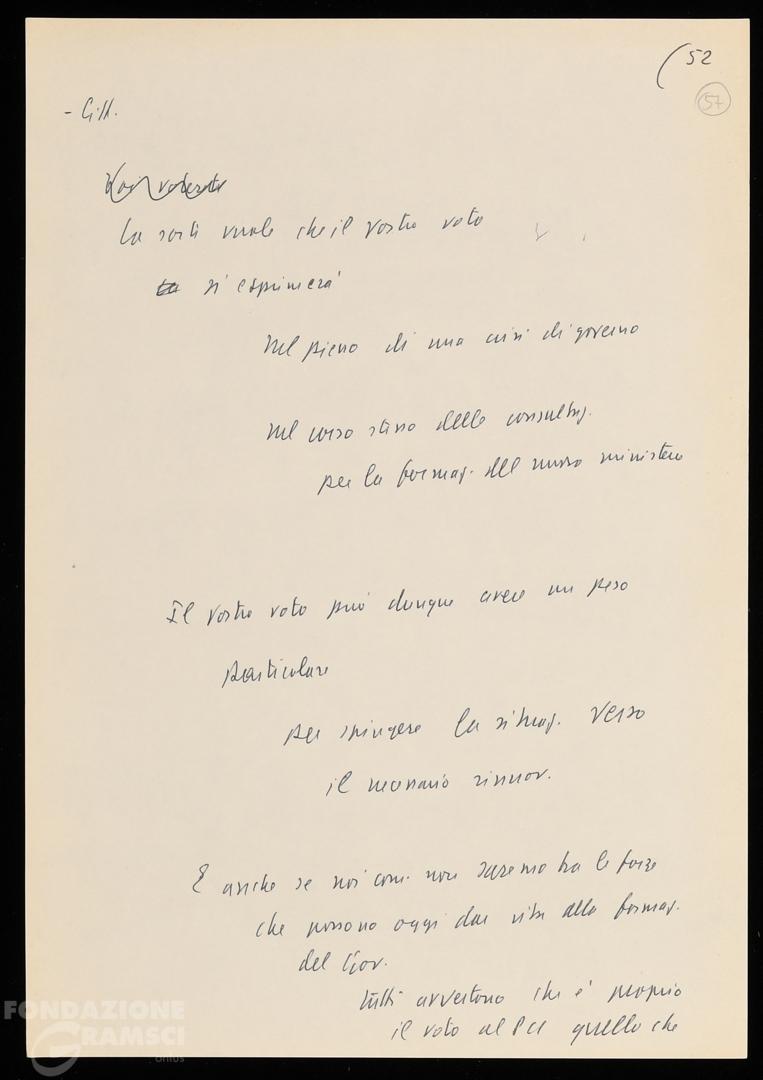 (52
57
- Citt.
Voi voterete
La sorte vuole che il vostro voto
si esprimerà
nel pieno di una crisi di governo
nel corso stesso delle consultaz.
per la formaz. del nuovo ministero
Il vostro voto può dunque avere un peso
particolare
per spingere la situaz. verso
il necessario rinnov.
E anche se noi com. non saremo tra le forze
che possono oggi dar vita alla formaz.
del Gov.
tutti avvertono che è proprio
il voto al PCI quello che
FONDAZIONE
GRAMSCI
onlus